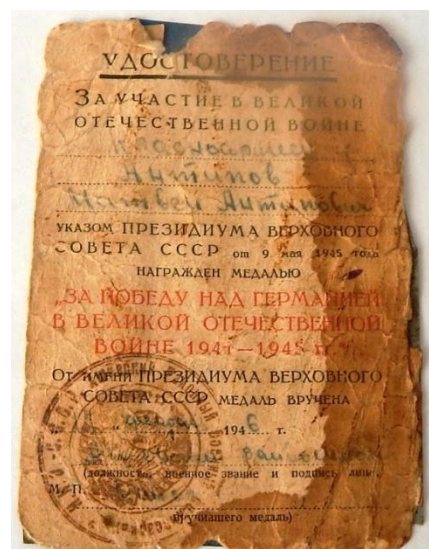 УДОСТОВЕРЕНИЕ
ЗА УЧАСТИЕ В ВЕЛИКОЙ
ОТЕЧЕСТВЕННОЙ ВОЙНЕ
Антипов
Матвей Антипович
УКАЗОМ ПРЕЗИДИУМА ВЕРХОВНОГО
СОВЕТА СССР от 9 мая 1945 года
НАГРАЖДЕН МЕДАЛЬЮ
„ЗА ПОБЕДУ НАД ГЕРМАНИЕЙ
В ВЕЛИКОЙ ОТЕЧЕСТВЕННОЙ
ВОЙНЕ 1941—1945 гг."
ОТ имени ПРЕЗИДИУМА ВЕРХОВНОГО
СОВЕТА СССР МЕДАЛЬ ВРУЧЕНА
1946 г.
(должность, военное звание и подпись лица,
М. П.
вручившего медаль)